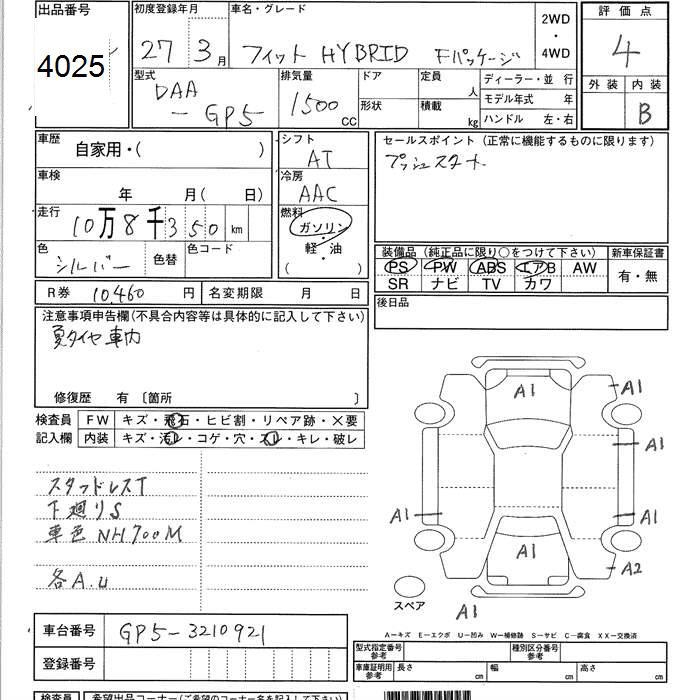 出品番号 初度登録年月 車名・グレード 2WD・4WD 評価点
4025 27年 3月 フィット HYBRID Fパッケージ 4
型式 DAA-GP5 排気量 1500cc ドア 形状 定員 人 積載 kg
ディーラー・並 行
モデル年式 年
ハンドル 左・右
外装 内装 B
車歴 自家用・( ) シフト AT
セールスポイント(正常に機能するものに限ります)
プッシュスタート
車検 年 月(日) 冷房 AAC
走行 10万8千350km 燃料 ガソリン・軽・油 ( )
色 シルバー 色替 色コード
装備品(純正品に限り○をつけて下さい) 新車保証書
PS PW ABS エアB AW 有・無
SR ナビ TV カワ
R券 10,460円 名変期限 月 日
後日品
注意事項申告欄(不具合内容等は具体的に記入して下さい)
夏タイヤ車内
修復歴 有〔箇所 〕
検査員記入欄 FW キズ・飛石・ヒビ割・リペア跡・×要
内装 キズ・汚レ・コゲ・穴・スレ・キレ・破レ
スタッドレスT
下廻りS
車色 NH700M
各A.U
A1 A1
A1
A1 A1
A1 A2
スペア A1
A―キズ E―エクボ U―凹み W―補修跡 S―サビ C―腐食 XX―交換済
車台番号 GP5-3210921
登録番号
型式指定番号 参考 種別区分番号 参考
車庫証明用 参考 長さ cm 幅 cm 高さ cm
検査員 希望出品コーナー(ご希望のコーナー名を記入下さい)